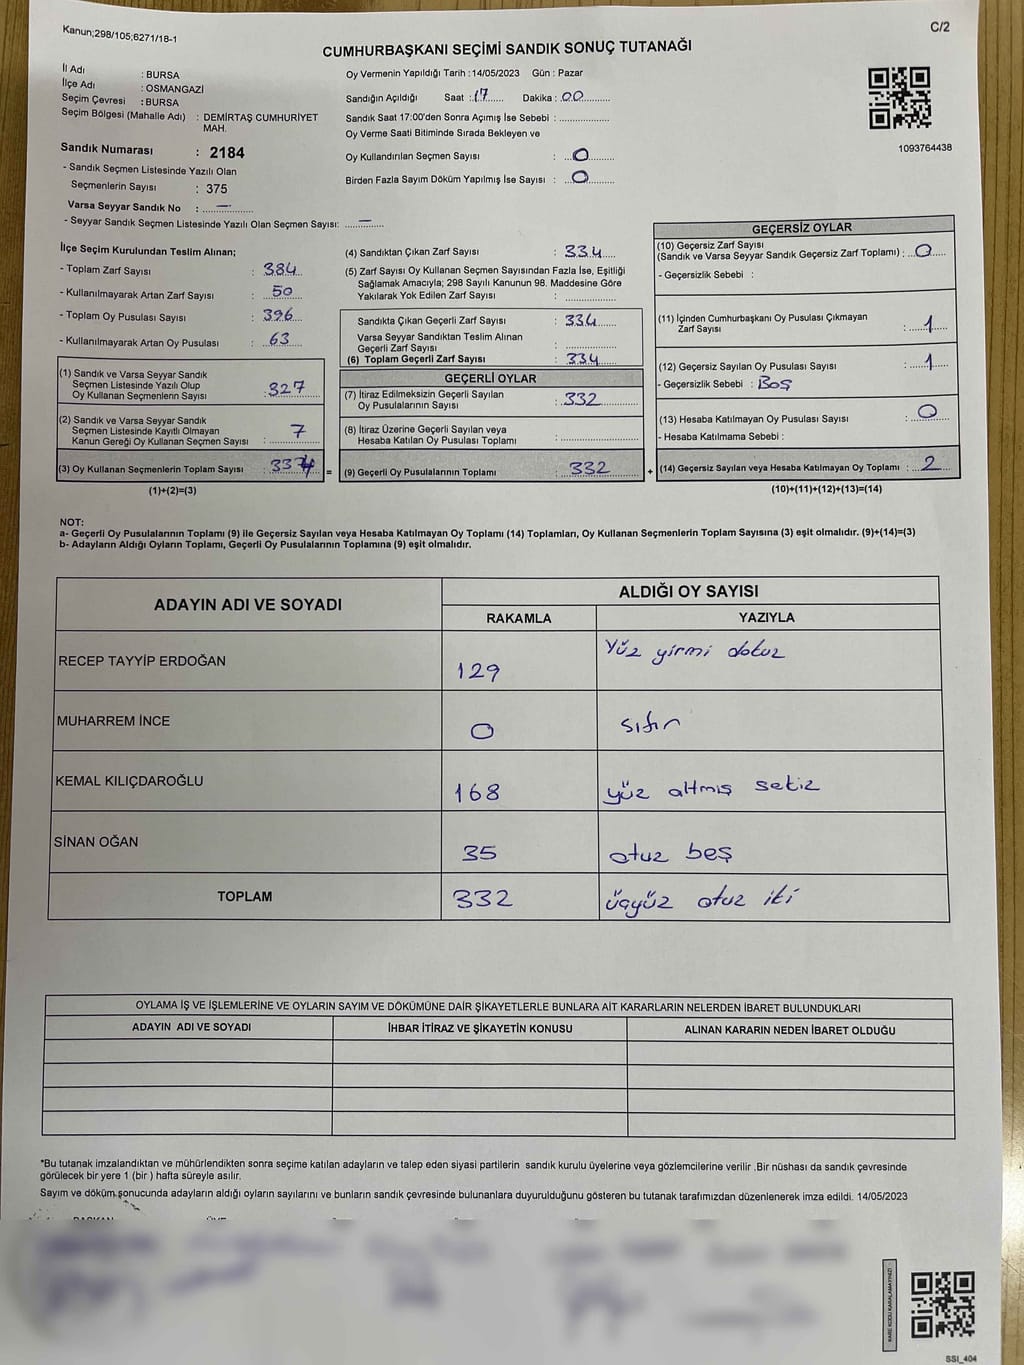 Kanun;298/105,6271/18-1
C/2
CUMHURBAŞKANI SEÇİMİ SANDIK SONUÇ TUTANAĞI
İl Adı : BURSA
İlçe Adı : OSMANGAZİ
Seçim Çevresi : BURSA
Seçim Bölgesi (Mahalle Adı) : DEMİRTAŞ CUMHURİYET
MAH.
Sandık Numarası : 2184
- Sandık Seçmen Listesinde Yazılı Olan
Seçmenlerin Sayısı : 375
Varsa Seyyar Sandık No : —
- Seyyar Sandık Seçmen Listesinde Yazılı Olan Seçmen Sayısı: —
Oy Vermenin Yapıldığı Tarih :14/05/2023 Gün : Pazar
Sandığın Açıldığı Saat : 17 Dakika : 00
Sandık Saat 17:00'den Sonra Açımış İse Sebebi :
Oy Verme Saati Bitiminde Sırada Bekleyen ve
Oy Kullandırılan Seçmen Sayısı : 0
Birden Fazla Sayım Döküm Yapılmış İse Sayısı : 0
1093764438
İlçe Seçim Kurulundan Teslim Alınan;
- Toplam Zarf Sayısı : 384
- Kullanılmayarak Artan Zarf Sayısı : 50
- Toplam Oy Pusulası Sayısı : 396
- Kullanılmayarak Artan Oy Pusulası : 63
(1) Sandık ve Varsa Seyyar Sandık
Seçmen Listesinde Yazılı Olup
Oy Kullanan Seçmenlerın Sayısı : 327
(2) Sandık ve Varsa Seyyar Sandık
Seçmen Listesinde Kayıtlı Olmayan
Kanun Gereği Oy Kullanan Seçmen Sayısı : 7
(3) Oy Kullanan Seçmenlerin Toplam Sayısı : 334 =
(1)+(2)=(3)
(4) Sandıktan Çıkan Zarf Sayısı : 334
(5) Zarf Sayısı Oy Kullanan Seçmen Sayısından Fazla İse, Eşitliği
Sağlamak Amacıyla; 298 Sayılı Kanunun 98. Maddesine Göre
Yakılarak Yok Edilen Zarf Sayısı :
Sandıkta Çıkan Geçerli Zarf Sayısı : 334
Varsa Seyyar Sandıktan Teslim Alınan
Geçerli Zarf Sayısı :
(6) Toplam Geçerli Zarf Sayısı : 334
GEÇERLİ OYLAR
(7) İtiraz Edilmeksizin Geçerli Sayılan
Oy Pusulalarının Sayısı : 332
(8) İtiraz Üzerine Geçerli Sayılan veya
Hesaba Katılan Oy Pusulası Toplamı :
(9) Geçerli Oy Pusulalarının Toplamı : 332 +
GEÇERSİZ OYLAR
(10) Geçersiz Zarf Sayısı
(Sandık ve Varsa Seyyar Sandık Geçersiz Zarf Toplamı) : 0
- Geçersizlik Sebebi :
(11) İçinden Cumhurbaşkanı Oy Pusulası Çıkmayan
Zarf Sayısı : 1
(12) Geçersiz Sayılan Oy Pusulası Sayısı : 1
- Geçersizlik Sebebi : Boş
(13) Hesaba Katılmayan Oy Pusulası Sayısı : 0
- Hesaba Katılmama Sebebi :
(14) Geçersiz Sayılan veya Hesaba Katılmayan Oy Toplamı : 2
(10)+(11)+(12)+(13)=(14)
NOT:
a- Geçerli Oy Pusulalarının Toplamı (9) ile Geçersiz Sayılan veya Hesaba Katılmayan Oy Toplamı (14) Toplamları, Oy Kullanan Seçmenlerin Toplam Sayısına (3) eşit olmalıdır. (9)+(14)=(3)
b- Adayların Aldığı Oyların Toplamı, Geçerli Oy Pusulalarının Toplamına (9) eşit olmalıdır.
ADAYIN ADI VE SOYADI
ALDIĞI OY SAYISI
RAKAMLA YAZIYLA
RECEP TAYYİP ERDOĞAN 129 Yüz yirmi dokuz
MUHARREM İNCE 0 sıfır
KEMAL KILIÇDAROĞLU 168 yüz altmış sekiz
SİNAN OĞAN 35 otuz beş
TOPLAM 332 üçyüz otuz iki
OYLAMA İŞ VE İŞLEMLERİNE VE OYLARIN SAYIM VE DÖKÜMÜNE DAİR ŞİKAYETLERLE BUNLARA AİT KARARLARIN NELERDEN İBARET BULUNDUKLARI
ADAYIN ADI VE SOYADI İHBAR İTİRAZ VE ŞİKAYETİN KONUSU ALINAN KARARIN NEDEN İBARET OLDUĞU
*Bu tutanak imzalandıktan ve mühürlendikten sonra seçime katılan adayların ve talep eden siyasi partilerin sandık kurulu üyelerine veya gözlemcilerine verilir .Bir nüshası da sandık çevresinde
görülecek bir yere 1 (bir ) hafta süreyle asılır.
Sayım ve döküm sonucunda adayların aldığı oyların sayılarını ve bunların sandık çevresinde bulunanlara duyurulduğunu gösteren bu tutanak tarafımızdan düzenlenerek imza edildi. 14/05/2023
BAŞKAN ÜYE
KARE KODU KARALAMAYINIZ!
SSI_404